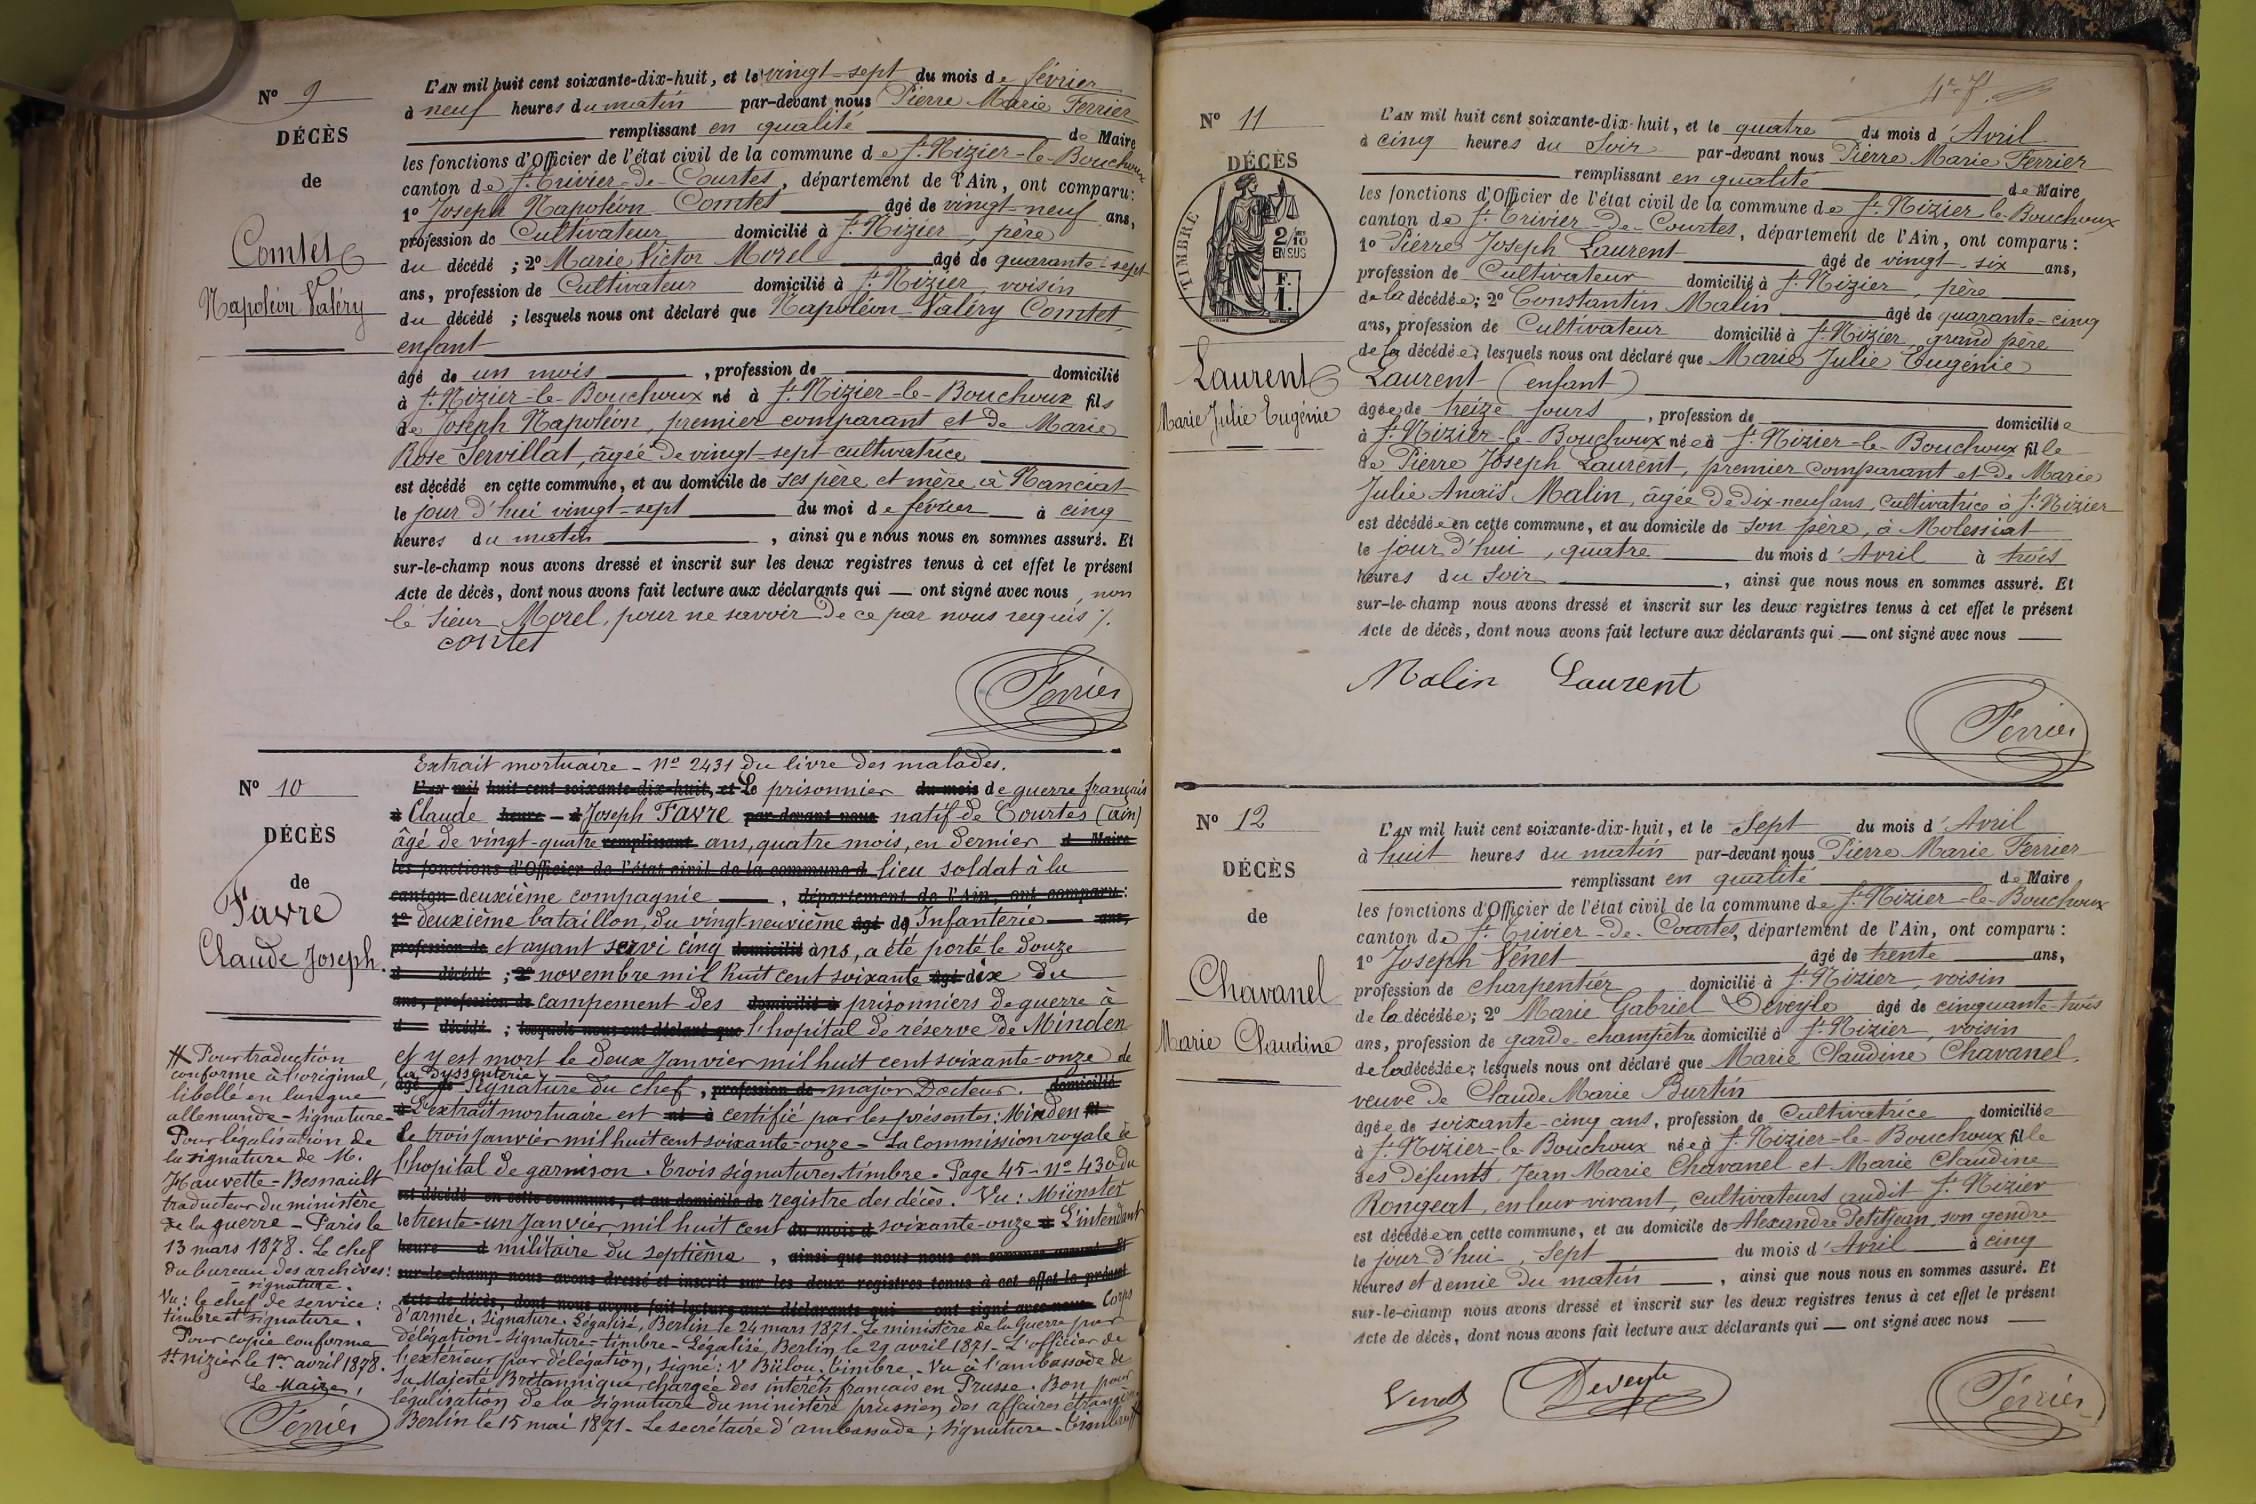 Nº 9
DÉCÈS
de
Comtet
Napoléon Valéry
L'AN mil huit cent soixante-dix-huit, et le vingt-sept du mois de février
à neuf heures du matin par-devant nous Pierre Marie Ferrier
remplissant en qualité de Maire
les fonctions d'Officier de l'état civil de la commune de St. Nizier-le-Bouchoux
canton de St. Trivier-de-Courtes, département de l'Ain, ont comparu:
1º Joseph Napoléon Comtet âgé de vingt-neuf ans,
profession de Cultivateur domicilié à St. Nizier, père
du décédé ; 2º Marie Victor Morel âgé de quarante-sept
ans, profession de Cultivateur domicilié à St. Nizier, voisin
du décédé ; lesquels nous ont déclaré que Napoléon Valéry Comtet,
enfant
âgé de un mois, profession de domicilié
à St. Nizier-le-Bouchoux né à St. Nizier-le-Bouchoux fils
de Joseph Napoléon, premier comparant et de Marie
Rose Servillat, âgée de vingt-sept cultivatrice
est décédé en cette commune, et au domicile de ses père et mère à Nanciat
le jour d'hui vingt-sept du moi de février à cinq
heures du matin, ainsi que nous nous en sommes assuré. Et
sur-le-champ nous avons dressé et inscrit sur les deux registres tenus à cet effet le présent
Acte de décès, dont nous avons fait lecture aux déclarants qui — ont signé avec nous, non
le sieur Morel, pour ne savoir de ce par nous requis ./.
comtet
Ferrier
Nº 10
DÉCÈS
de
Favre
Claude Joseph.
Extrait mortuaire - Nº 2431 du livre des malades.
L'AN mil huit cent soixante-dix-huit, et Le prisonnier du mois de guerre français
à Claude heure - d Joseph Favre par-devant nous natif de Courtes (ain)
âgé de vingt-quatre remplissant ans, quatre mois, en dernier d Maire
les fonctions d'Officier de l'état civil de la commune d lieu soldat à la
canton deuxième compagnie —, département de l'Ain, ont comparu:
1º deuxième bataillon, du vingt-neuvième âgé de Infanterie — ans,
profession de et ayant servi cinq domicilié ans, a été porté le douze
d décédé ; 2º novembre mil huit cent soixante âgé dix du
ans, profession de campement des domicilié à prisonniers de guerre à
d décédé ; lesquels nous ont déclaré que l'hopital de réserve de Minden
et y est mort le deux Janvier mil huit cent soixante-onze de
la dyssenterie
âgé de Signature du chef, profession de major Docteur. domicilié
à L'extrait mortuaire est né à certifié par les présentes: Minden fil
le trois Janvier mil huit cent soixante-onze - La commission royale de
l'hopital de garnison. Trois signatures timbre. Page 45 - Nº 430 du
est décédé en cette commune, et au domicile de registre des décès. Vu: Münster
le trente-un Janvier, mil huit cent du mois d soixante-onze à L'intendant
heure d militaire du septième, ainsi que nous nous en sommes assuré. Et
sur-le-champ nous avons dressé et inscrit sur les deux registres tenus à cet effet le présent
Acte de décès, dont nous avons fait lecture aux déclarants qui — ont signé avec nous. Corps
d'armée. Signature. Légalisé, Berlin le 24 mars 1871. Le ministère de la Guerre par
délégation - signature - timbre - Légalisé, Berlin, le 29 avril 1871 - L'officier de
l'extérieur par délégation, signé: V Bülou. timbre. Vu à l'ambassade de
sa Majesté Britannique chargée des intérêts français en Prusse. Bon pour
légalisation de la signature du ministère prussien des affaires étrangères
Berlin le 15 mai 1871 - Le secrétaire d'ambassade; signature - timbre #
# Pour traduction
conforme à l'original,
libellé en langue
allemande - signature -
Pour légalisation de
la signature de M.
Hauvette-Besnault
traducteur du ministère
de la guerre - Paris le
13 mars 1878. Le chef
du bureau des archives:
- signature.
Vu: le chef de service:
timbre et signature.
Pour copie conforme
St. Nizier le 1er avril 1878.
Le Maire,
Ferrier
Nº 11
DÉCÈS
TIMBRE
2/10 EN SUS
F.
1.
Laurent
Marie Julie Eugénie
L'AN mil huit cent soixante-dix-huit, et le quatre du mois d'Avril
à cinq heures du Soir par-devant nous Pierre Marie Ferrier
remplissant en qualité de Maire
les fonctions d'Officier de l'état civil de la commune de St. Nizier le-Bouchoux
canton de St. Trivier-de-Courtes, département de l'Ain, ont comparu:
1º Pierre Joseph Laurent âgé de vingt-six ans,
profession de Cultivateur domicilié à St. Nizier, père
de la décédée; 2º Constantin Malin âgé de quarante-cinq
ans, profession de Cultivateur domicilié à St. Nizier, grand père
de la décédée; lesquels nous ont déclaré que Marie Julie Eugénie
Laurent (enfant)
âgée de treize jours, profession de domiciliée
à St. Nizier-le-Bouchoux née à St. Nizier-le-Bouchoux fille
de Pierre Joseph Laurent, premier comparant et de Marie
Julie Anaïs Malin, âgée de dix-neuf ans, cultivatrice à St. Nizier
est décédée en cette commune, et au domicile de son père, à Molessiat
le jour d'hui, quatre du mois d'Avril à trois
heures du Soir, ainsi que nous nous en sommes assuré. Et
sur-le-champ nous avons dressé et inscrit sur les deux registres tenus à cet effet le présent
Acte de décès, dont nous avons fait lecture aux déclarants qui — ont signé avec nous —
Malin Laurent
Ferrier
Nº 12
DÉCÈS
de
Chavanel
Marie Claudine
L'AN mil huit cent soixante-dix-huit, et le Sept du mois d'Avril
à huit heures du matin par-devant nous Pierre Marie Ferrier
remplissant en qualité de Maire
les fonctions d'Officier de l'état civil de la commune de St. Nizier-le-Bouchoux
canton de St. Trivier-de-Courtes, département de l'Ain, ont comparu:
1º Joseph Vénet âgé de trente ans,
profession de charpentier domicilié à St. Nizier, voisin
de la décédée; 2º Marie Gabriel Deveyle âgé de cinquante-trois
ans, profession de garde-champêtre domicilié à St. Nizier, voisin
de la décédée; lesquels nous ont déclaré que Marie Claudine Chavanel,
veuve de Claude Marie Burtin
âgée de soixante-cinq ans, profession de Cultivatrice domiciliée
à St. Nizier-le-Bouchoux née à St. Nizier-le-Bouchoux fille
des défunts Jean Marie Chavanel et Marie Claudine
Rongeat, en leur vivant, cultivateurs audit St. Nizier
est décédée en cette commune, et au domicile de Alexandre Petitjean, son gendre
le jour d'hui, Sept du mois d'Avril à cinq
heures et demie du matin, ainsi que nous nous en sommes assuré. Et
sur-le-champ nous avons dressé et inscrit sur les deux registres tenus à cet effet le présent
Acte de décès, dont nous avons fait lecture aux déclarants qui — ont signé avec nous —
Venet Deveyle
Ferrier